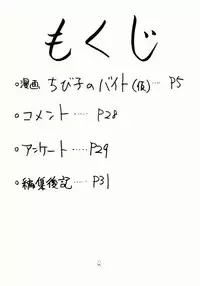 もくじ
○漫画 ちび子のバイト(仮)… P5
○コメント…… P28
○アンケート…… P29
○編集後記…… P31